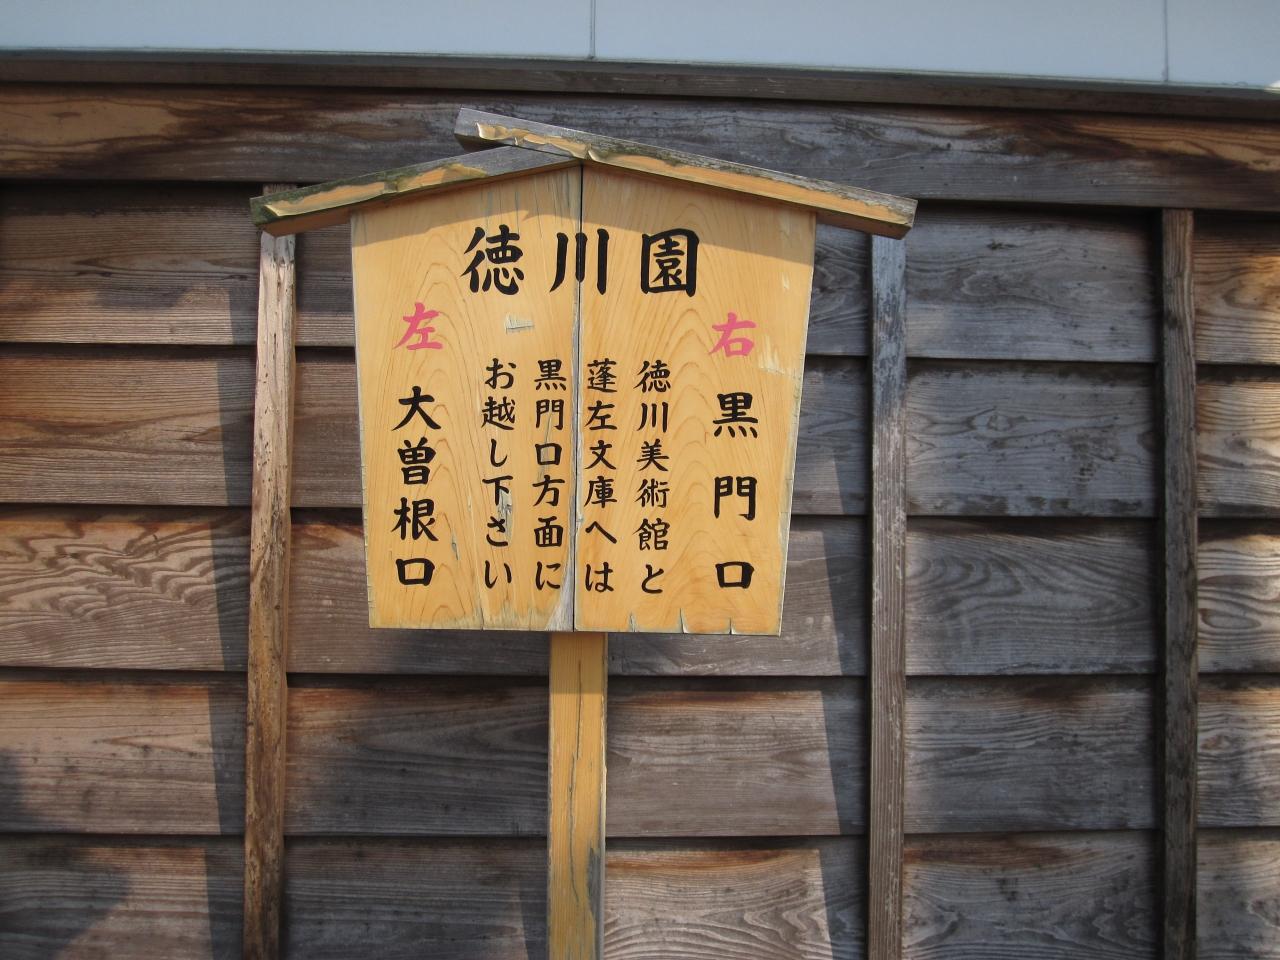 徳川園
右 黒門口
徳川美術館と
蓬左文庫へは
黒門口方面に
お越し下さい
左 大曽根口